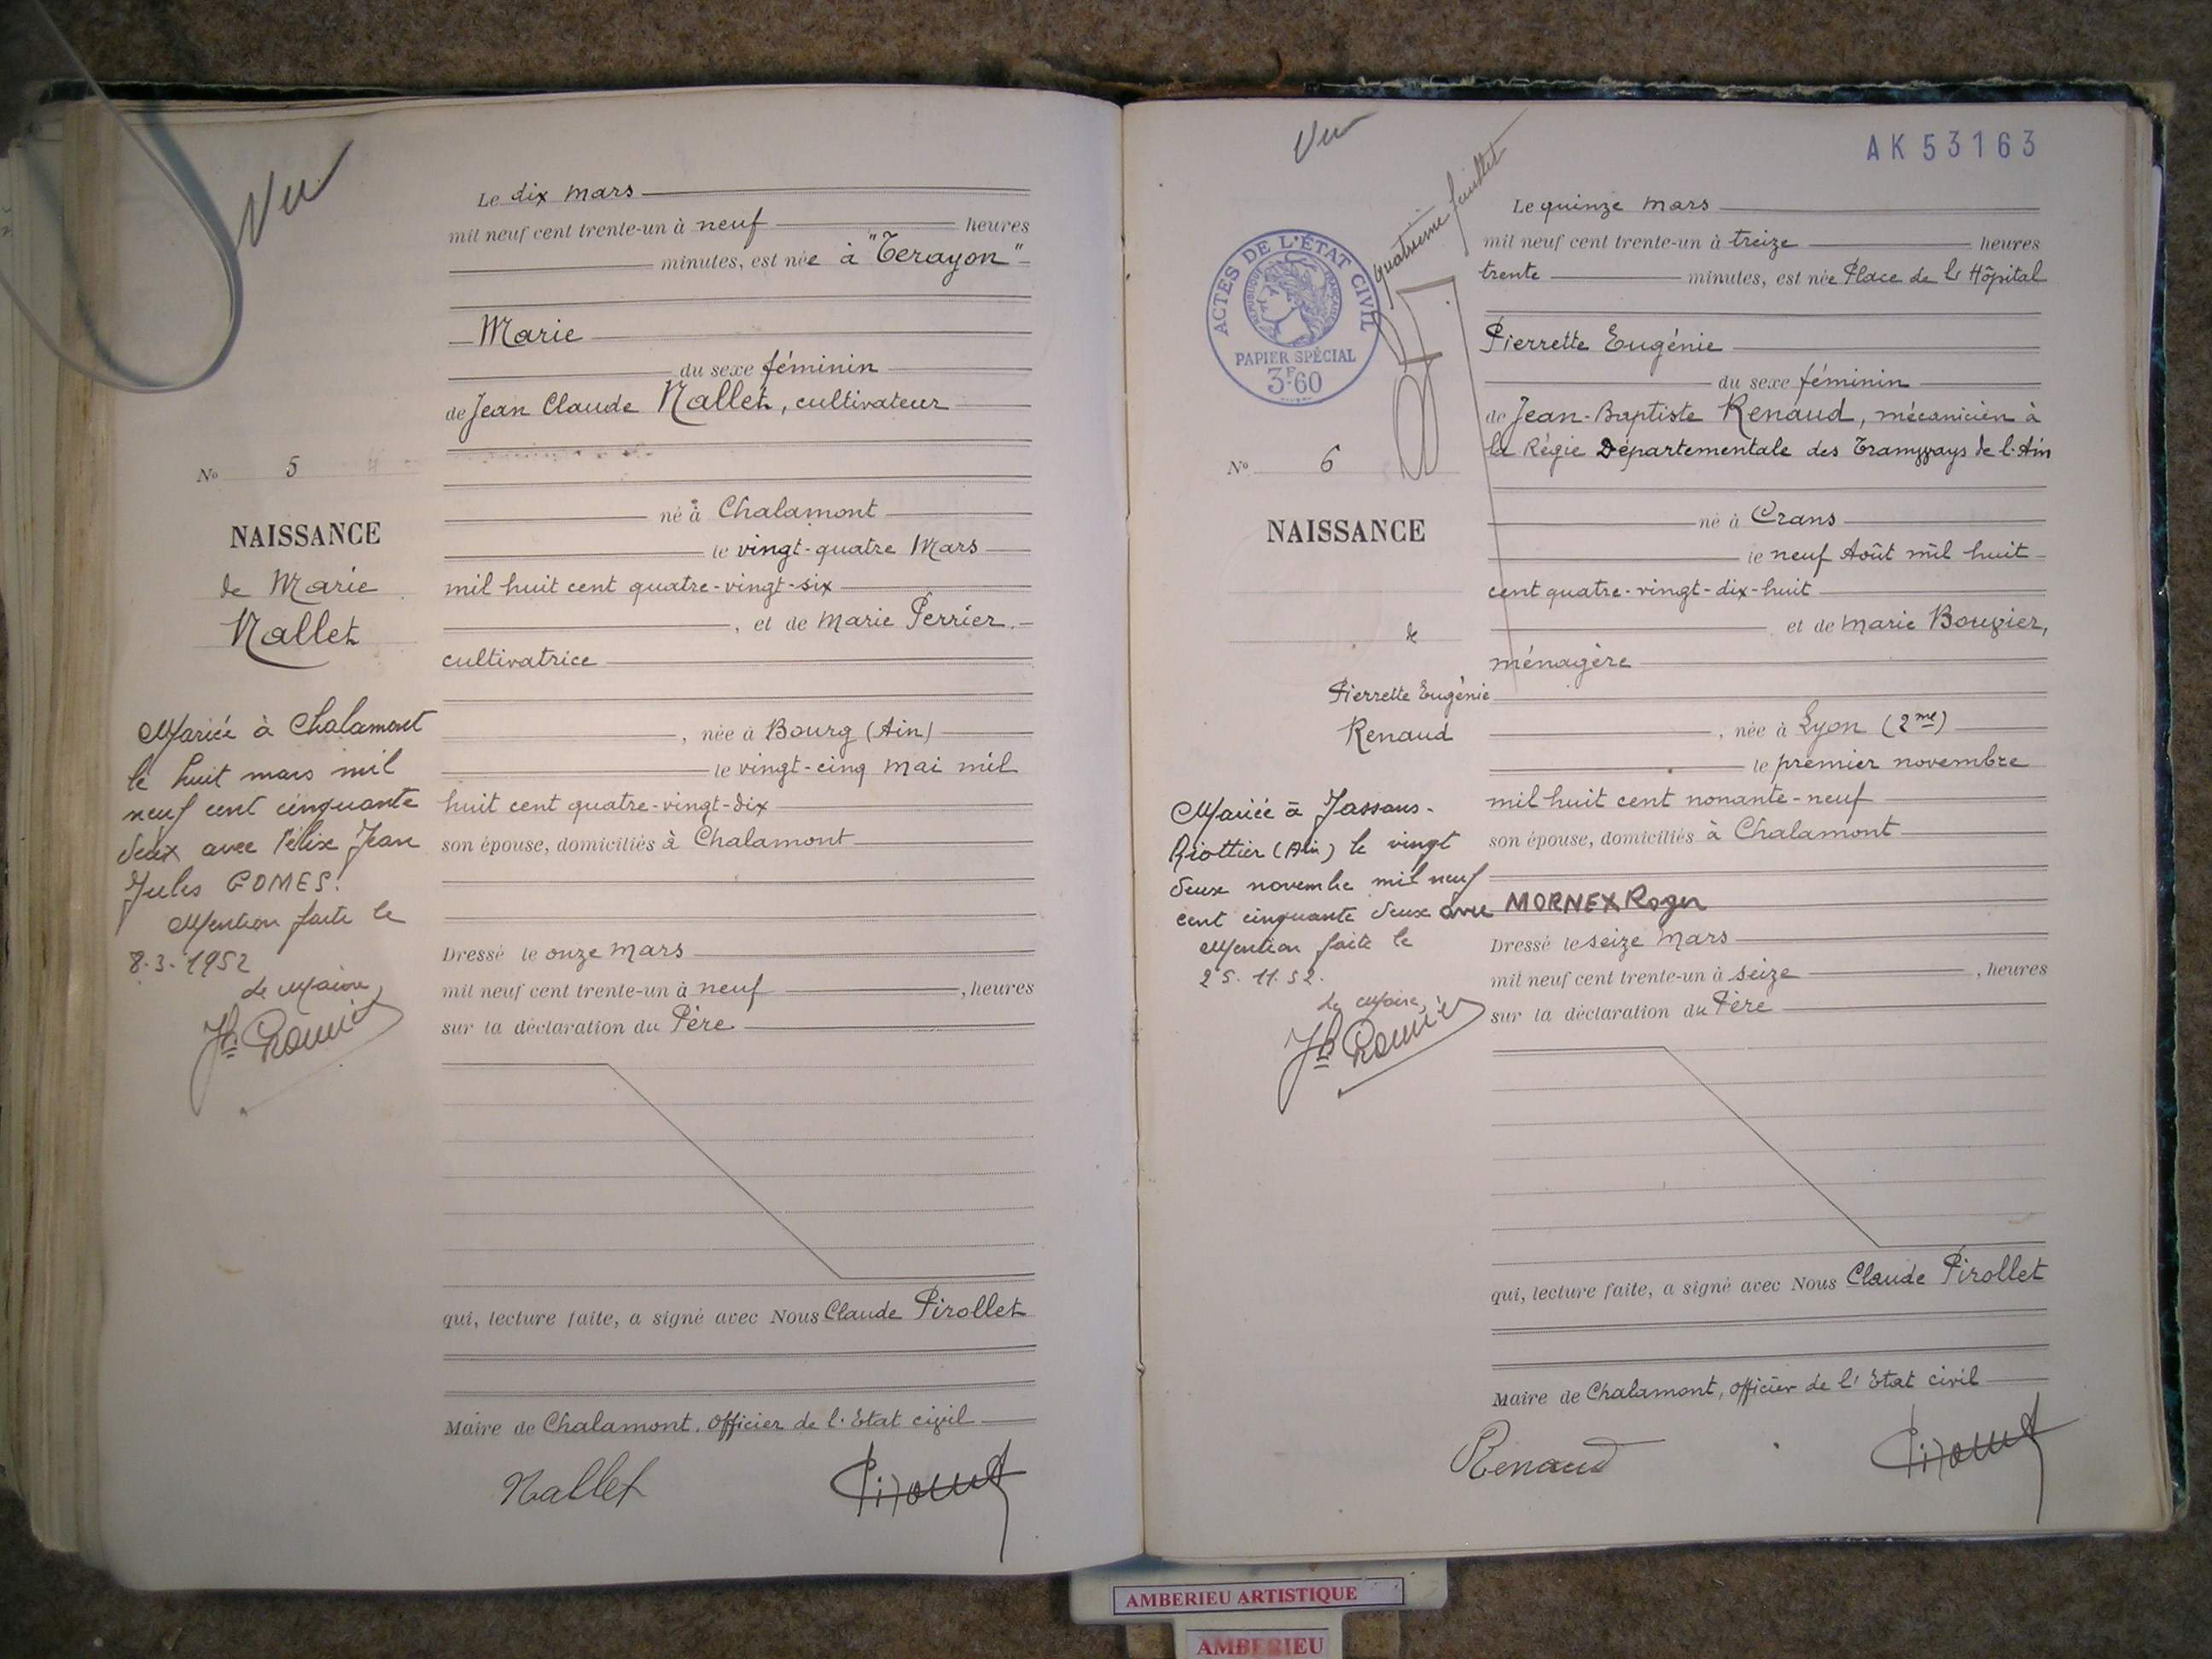 Vu
Le dix mars
mil neuf cent trente-un à neuf heures
minutes, est née à "Terayon"
Marie
du sexe féminin
de Jean Claude Nallet, cultivateur
né à Chalamont
le vingt-quatre Mars
mil huit cent quatre-vingt-six
, et de Marie Perrier,
cultivatrice
, née à Bourg (Ain)
le vingt-cinq mai mil
huit cent quatre-vingt-dix
son épouse, domiciliés à Chalamont
Dressé le onze mars
mil neuf cent trente-un à neuf , heures
sur la déclaration du Père
qui, lecture faite, a signé avec Nous Claude Pirollet
Maire de Chalamont, Officier de l'Etat civil
Nallet
Pirollet
No 5
NAISSANCE
de Marie
Nallet
Mariée à Chalamont
le huit mars mil
neuf cent cinquante
deux avec Félix Jean
Jules GOMES.
Mention faite le
8.3.1952
Le Maire,
Vu
quatrième feuillet
AK 53163
ACTES DE L'ÉTAT CIVIL
RÉPUBLIQUE FRANÇAISE
PAPIER SPÉCIAL
3F60
Le quinze mars
mil neuf cent trente-un à treize heures
trente minutes, est née Place de l'Hôpital
Pierrette Eugénie
du sexe féminin
de Jean-Baptiste Renaud, mécanicien à
la Régie Départementale des Tramways de l'Ain
né à Crans
le neuf Août mil huit
cent quatre-vingt-dix-huit
et de Marie Bouvier,
ménagère
, née à Lyon (2me)
le premier novembre
mil huit cent nonante-neuf
son épouse, domiciliés à Chalamont
Dressé le seize mars
mil neuf cent trente-un à seize , heures
sur la déclaration du Père
qui, lecture faite, a signé avec Nous Claude Pirollet
Maire de Chalamont, Officier de l'Etat civil
Renaud
Pirollet
No 6
NAISSANCE
de
Pierrette Eugénie
Renaud
Mariée à Jassans-
Riottier (Ain) le vingt
deux novembre mil neuf
cent cinquante deux avec MORNEX Roger
Mention faite le
25.11.52.
Le Maire,
AMBERIEU ARTISTIQUE
AMBERIEU